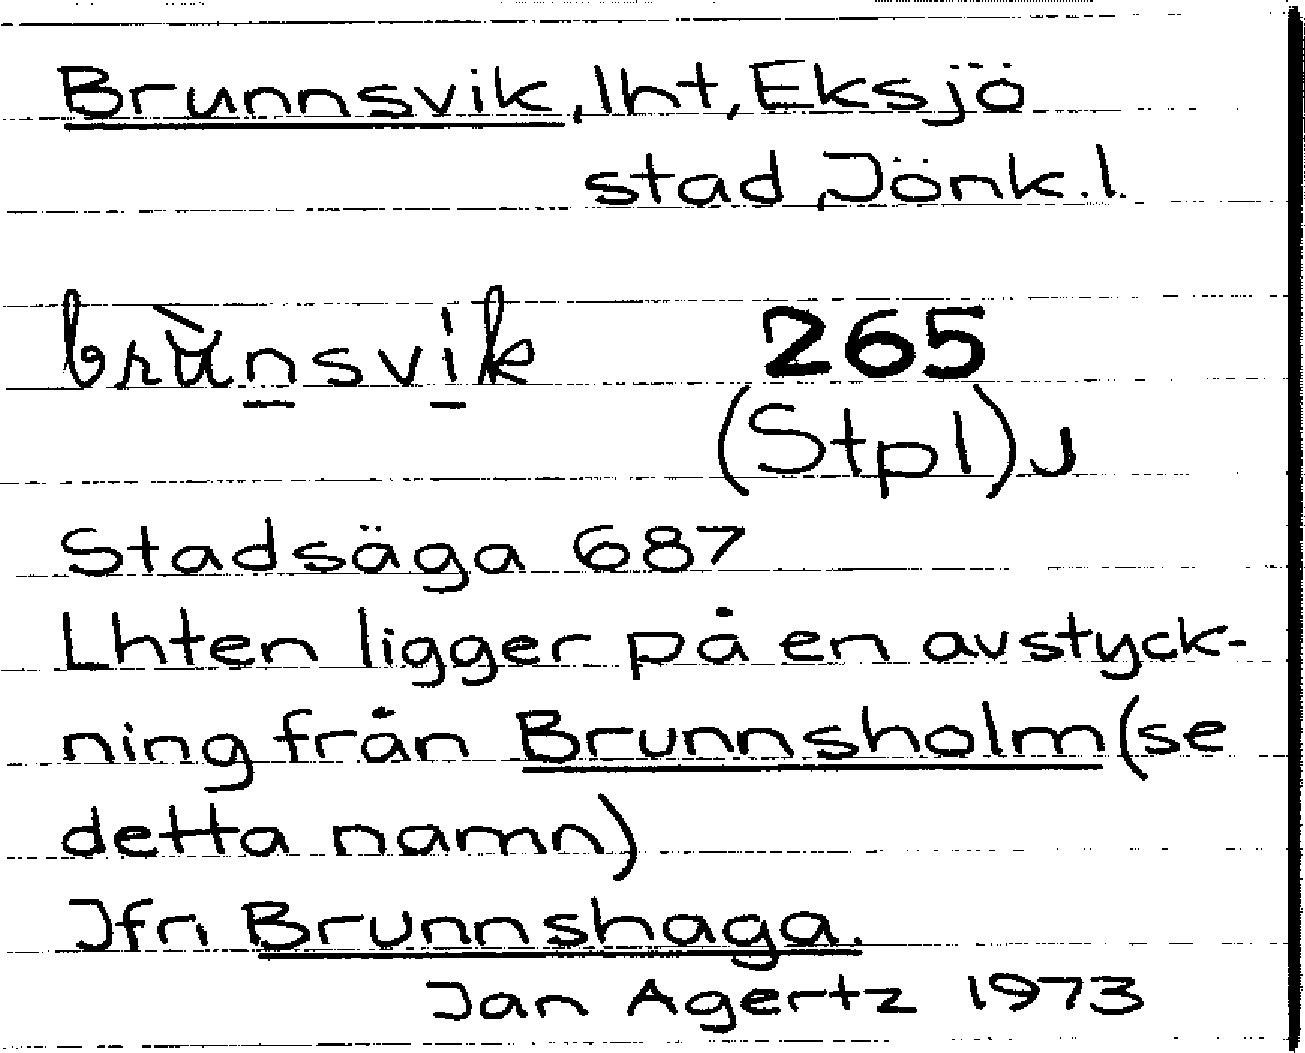 Brunnsvik, lht, Eksjö
stad, Jönk.l.
brùnsvik 265
(Stpl) J
Stadsäga 687
Lhten ligger på en avstyck-
ning från Brunnsholm (se
detta namn)
Jfr Brunnshaga.
Jan Agertz 1973